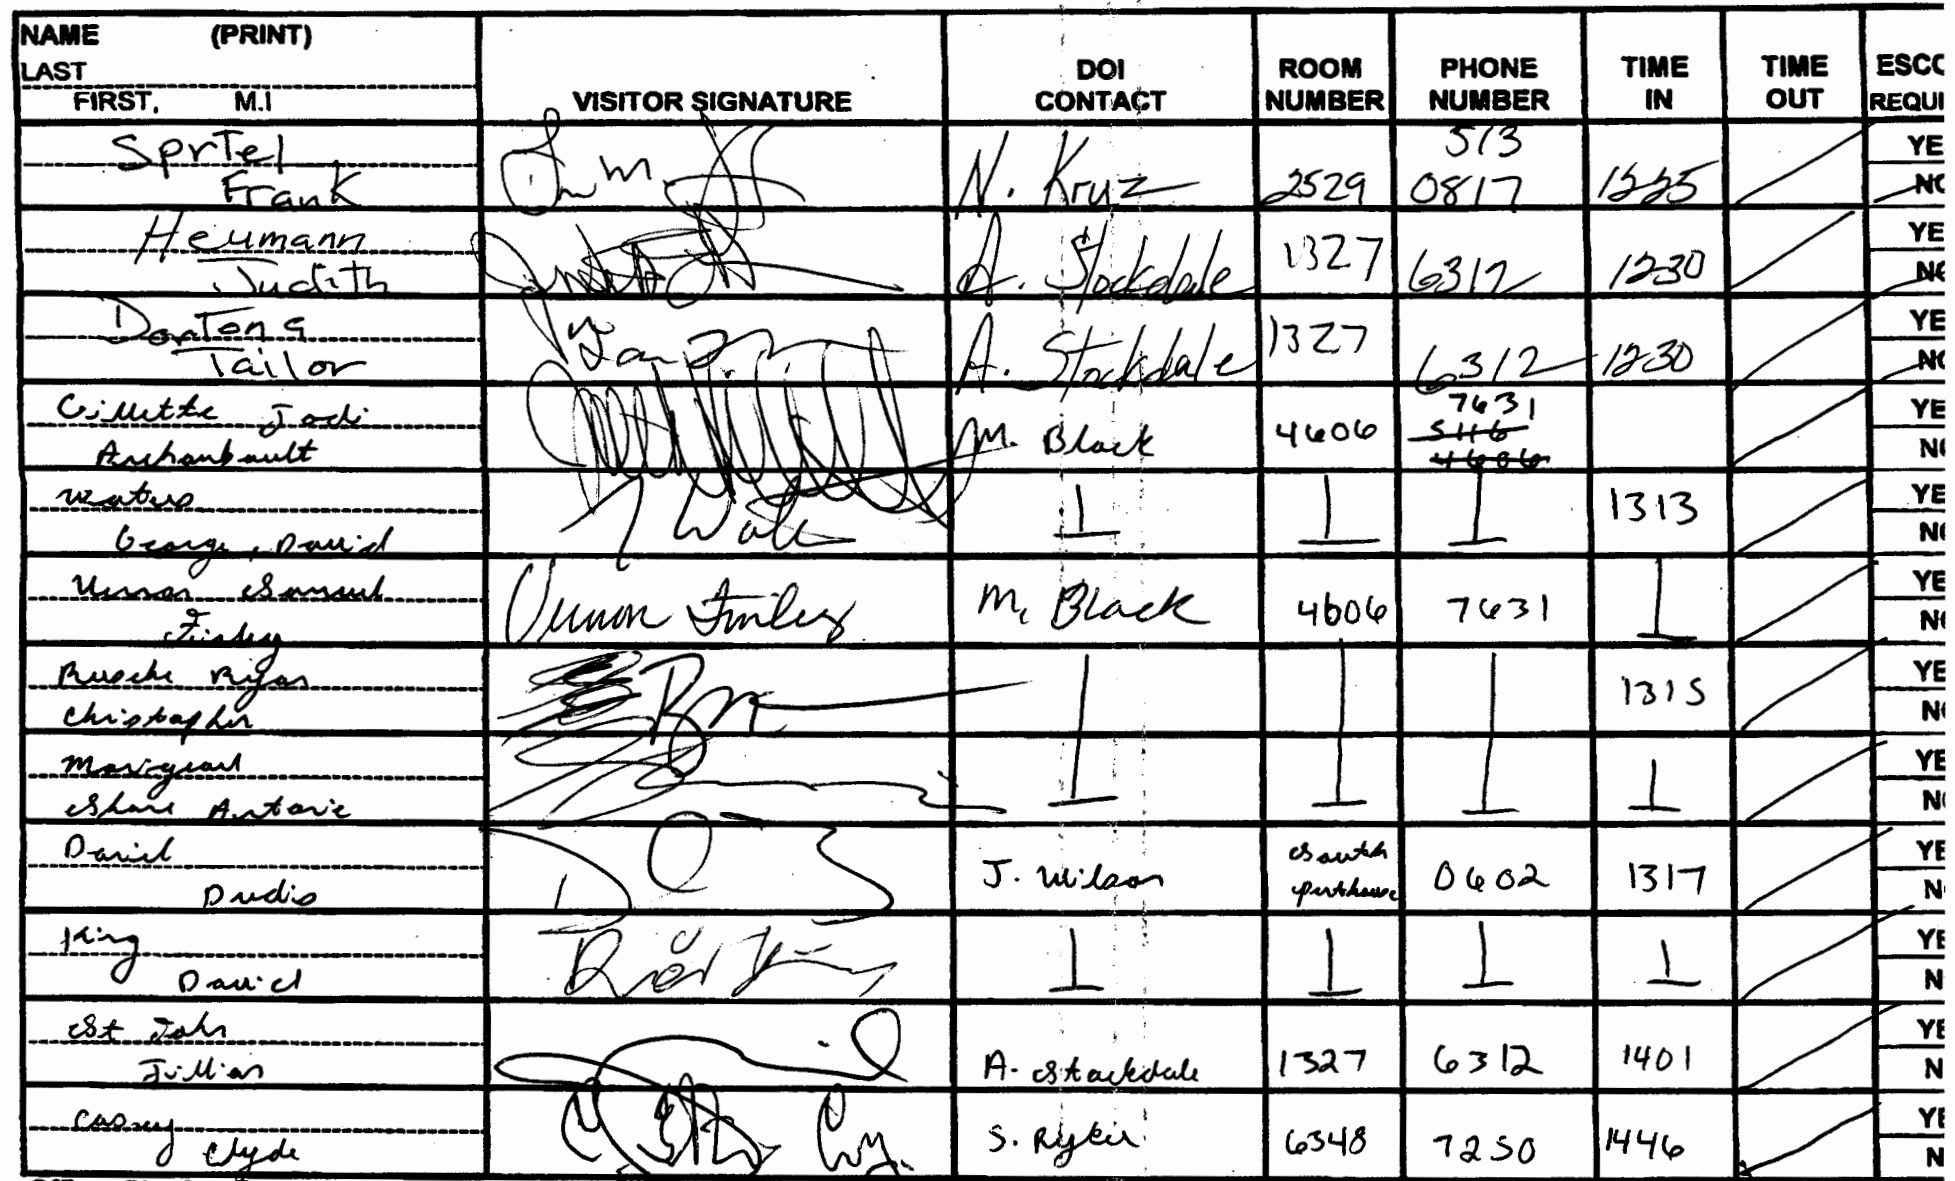 NAME (PRINT)
LAST
FIRST. M.I
VISITOR SIGNATURE
DOI CONTACT
ROOM NUMBER
PHONE NUMBER
TIME IN
TIME OUT
ESCO
REQUI
Sprtel
Frank
N. Kruz
2529
513
0817
1225
YE
NO
Heumann
Judith
A. Stockdale
1327
6312
1230
YE
NO
Tailor
A. Stockdale
1327
6312
1230
YE
NO
Gillette Jodi
Archambault
M. Black
4606
7631
5116
4606
YE
NO
Waters
George, David
1313
YE
NO
Vernon Samuel
Finley
Vernon Finley
M. Black
4606
7631
YE
NO
Rusche Ryan
Christopher
1315
YE
NO
Shane Antoine
YE
NO
Daniel
Dudis
J. Wilson
South
penthouse
0602
1317
YE
N
King
David
YE
N
St John
Jillian
A. Stockdale
1327
6312
1401
YE
N
Casey
Clyde
S. Ryker
6348
7250
1446
YE
N